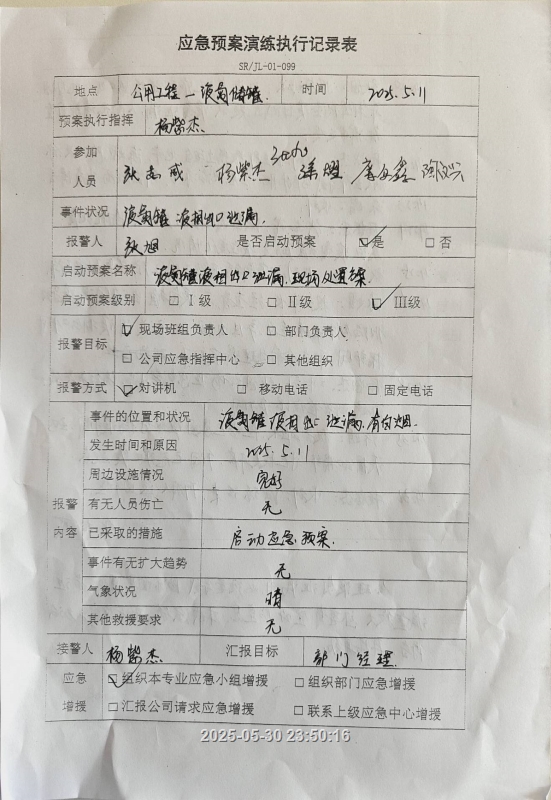 应急预案演练执行记录表
SR/JL-01-099
地点 公用工程-液氮储罐. 时间 2025.5.11
预案执行指挥 杨紫杰.
参加人员 张志威 杨紫杰
事件状况 液氮罐液相出口泄漏.
报警人 张旭 是否启动预案 ☑是 □否
启动预案名称 液氮罐液相出口泄漏.现场处置方案.
启动预案级别 □Ⅰ级 □Ⅱ级 ☑Ⅲ级
报警目标 ☑现场班组负责人 □部门负责人
□公司应急指挥中心 □其他组织
报警方式 ☑对讲机 □移动电话 □固定电话
报警内容
事件的位置和状况 液氮罐液相出口泄漏,有白烟.
发生时间和原因 2025.5.11
周边设施情况 完好
有无人员伤亡 无
已采取的措施 启动应急预案.
事件有无扩大趋势 无
气象状况 晴
其他救援要求 无
接警人 杨紫杰 汇报目标 部门经理.
应急增援 ☑组织本专业应急小组增援 □组织部门应急增援
□汇报公司请求应急增援 □联系上级应急中心增援
2025-05-30 23:50:16